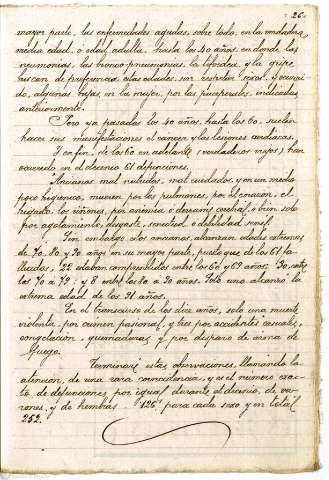 26.
mayor parte, las enfermedades agudas, sobre todo, en la verdadera
media edad, ó edad adulta, hasta los 40 años, en donde las
neumonias, las bronco pneumonias, la tifoidea y la gripe,
buscan de preferencia, á las edades, sin respetar sexos. Y ocurrie
do, algunas bajas en la mujer, por las puerperales indicadas
anteriormente.
Pero ya pasados los 40 años, hasta los 60, suelen
hacer sus manifestaciones el cancer y las lesiones cardiacas.
Y en fin, de los 60 en adelante, (verdaderos viejos) han
ocurrido en el decenio 61 defunciones.
Ancianos mal nutridos, mal cuidados, y en un medio
poco higienico, mueren por los pulmones, por el corazon, el
higado, los riñones, por anemia ó derrame cerebral, ó bien solo
por agotamiento, desgaste, senectud, ó debilidad senil.
Sin embargo estos ancianos, alcanzan edades extremas
de 70, 80, y 90 años en su mayor parte, puesto que de los 61 fa-
llecidos, 22 estaban comprendidos entre los 60 y 69 años; 30 entre
los 70 á 79, y 8 entre los 80 á 90 años. Solo uno alcanzó la
extrema edad de los 91 años.
En el transcurso de los diez años, solo una muerte
violenta, por crimen pasional, y tres por accidentes casuales,
congelacion, quemaduras y por disparo de arma de
fuego.
Terminaré estas observaciones, llamando la
atencion, de una rara coincidencia, y es el numero exac-
to, de defunciones, por igual durante el decenio, de va-
rones, y de hembras. "126" para cada sexo y en total
252.